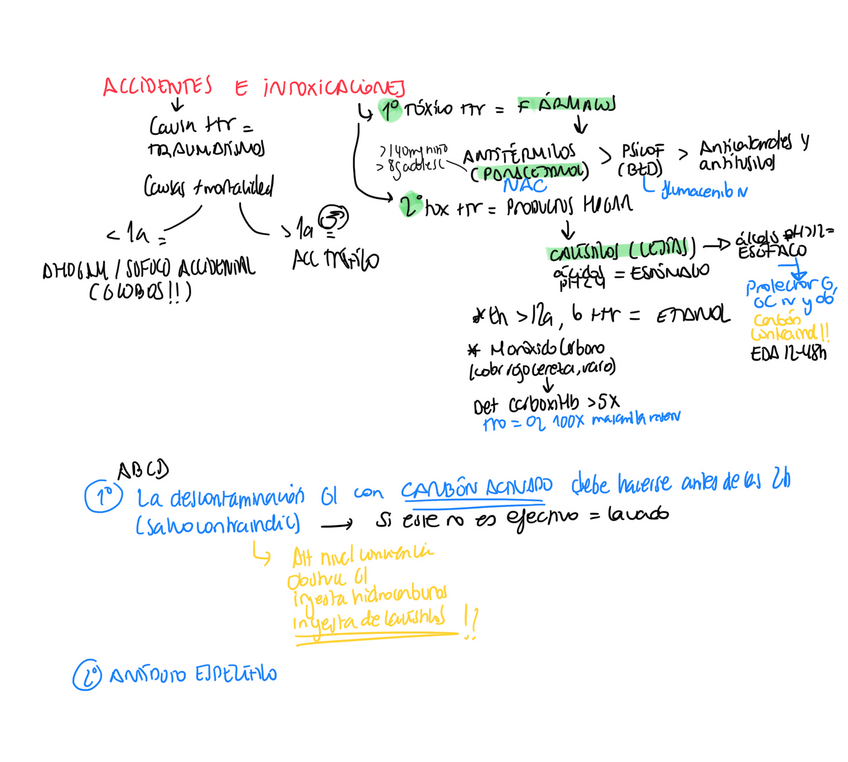 ACCIDENTES E INTOXICACIONES
Causa +fr =
TRAUMATISMOS
Causas +mortalidad
< 1a =
AHOGAM / SOFOCO ACCIDENTAL
(GLOBOS!!)
> 1a =
ACC TRÁFICO
1º TÓXICO +fr = FÁRMACOS
>140mg niño
> 8g adolesc
ANTITÉRMICOS
(PARACETAMOL)
NAC
> PSICOF
(BZD)
flumacenilo IV
> Anticatarrales y
antitusivos
2º tox +fr = PRODUCTOS HOGAR
CAÚSTICOS (LEJÍAS) → álcalis pH>12=
ESÓFAGO
ácidos = ESTÓMAGO
pH<4
Protector G,
GC IV y ab
Carbón
contraind!!
EDA 12-48h
* En >12a, tb +fr = ETANOL
* Monóxido Carbono
(color rojo cereza, raro)
Det CarboxiHb >5%
tto = O2 100% mascarilla reserv
ABCD
1º La descontaminación GI con CARBÓN ACTIVADO debe hacerse antes de las 2h
(salvo contraindic) → Si este no es efectivo = lavado
Alt nivel conciencia
Obstruc GI
ingesta hidrocarburos
ingesta de caústicos !!
2º ANTÍDOTO ESPECÍFICO